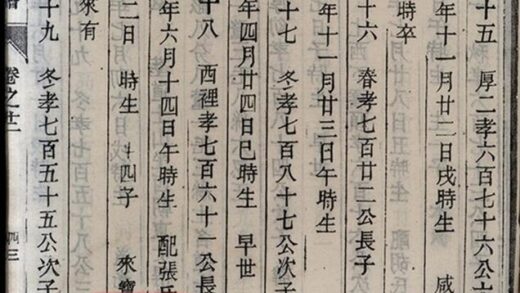 十五 厚二孝六百七十六公六
年十一月廿二日戌時生 咸
時卒
十六 春孝七百廿二公長子
年十一月廿三日午時生
十七 冬孝七百八十七公次子
年四月廿四日巳時生 早世
十八 西裡孝七百六十一公長
年六月十四日午時生 配張氏
二日 時生 四子 來寶
來有
十九 冬孝七百五十五公次子
卷之廿
四三